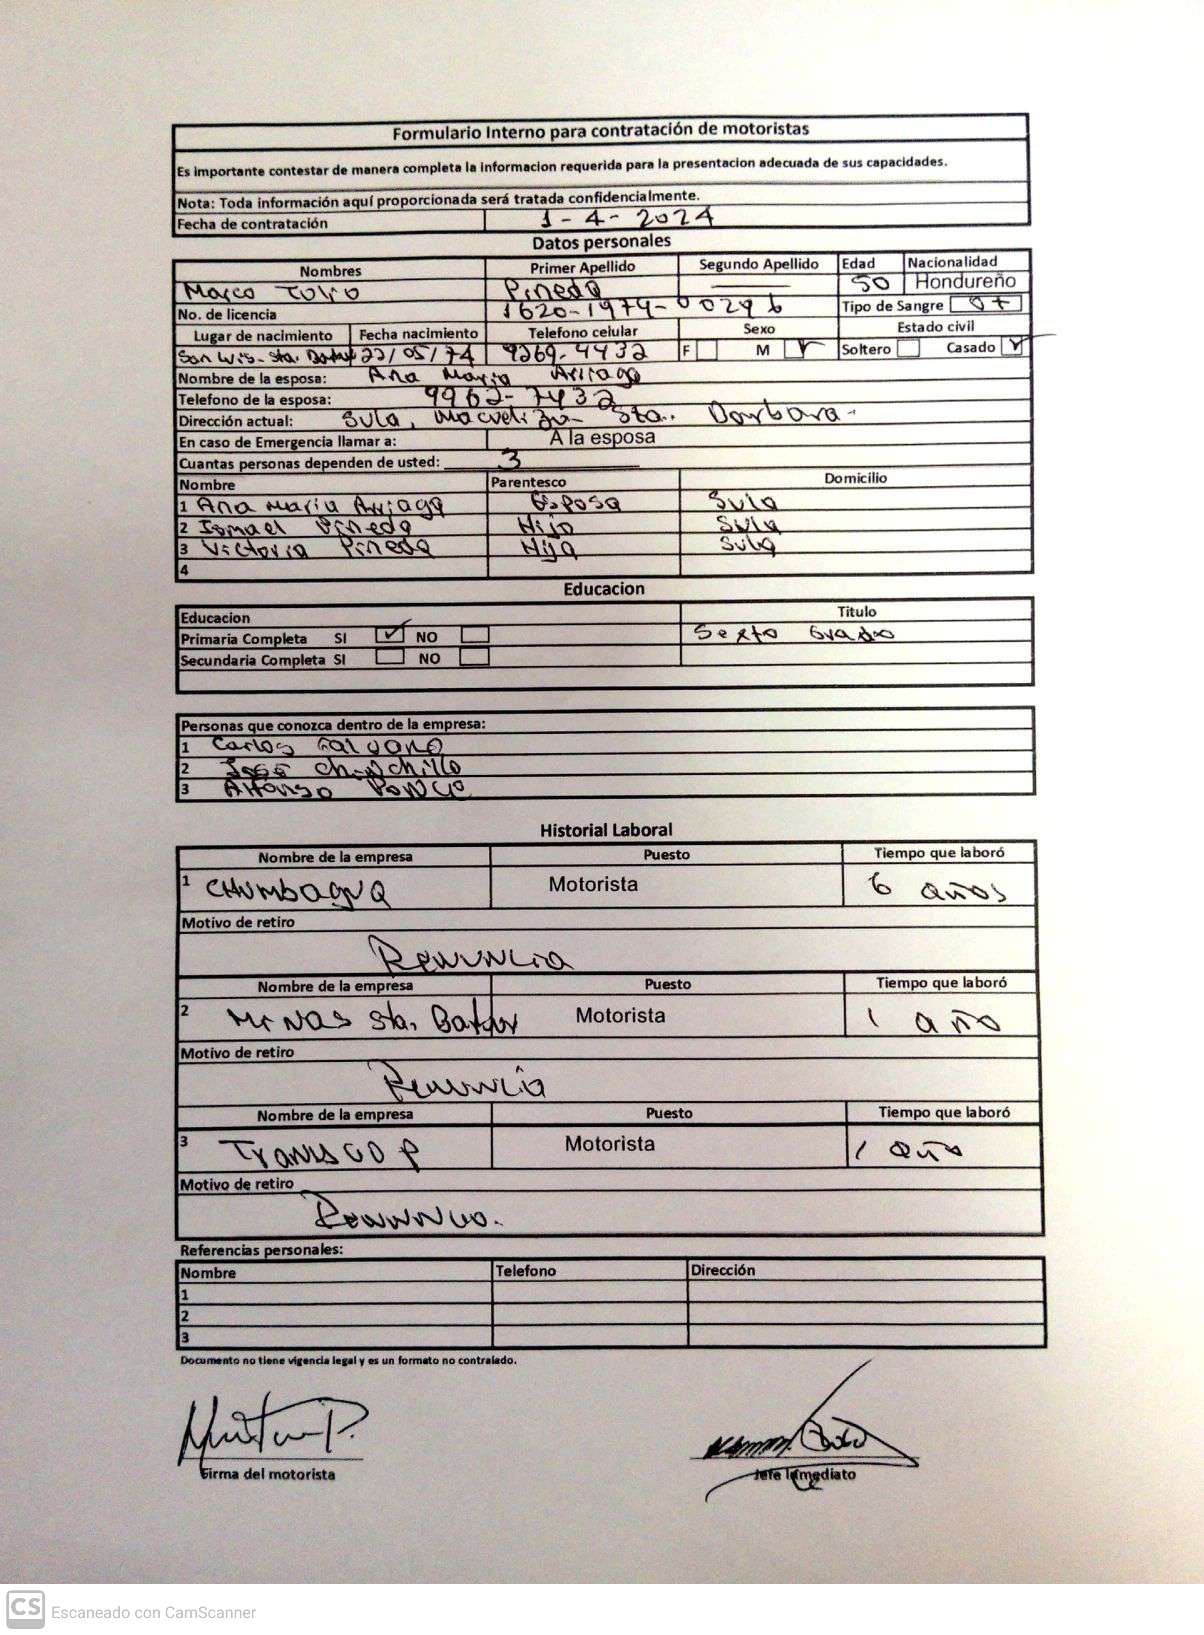 Formulario Interno para contratación de motoristas
Es importante contestar de manera completa la informacion requerida para la presentacion adecuada de sus capacidades.
Nota: Toda información aquí proporcionada será tratada confidencialmente.
Fecha de contratación 1-4-2024
Datos personales
Nombres Primer Apellido Segundo Apellido Edad Nacionalidad
Marco Tulio Pineda 50 Hondureño
No. de licencia 1620-1974-00296 Tipo de Sangre O+
Lugar de nacimiento Fecha nacimiento Telefono celular Sexo Estado civil
San Luis Sta. 22/05/74 9269-4432 F M Soltero Casado
Nombre de la esposa: Ana Maria Arriaga
Telefono de la esposa: 9962-7432
Dirección actual: Sula, Macuelizo Sta. Barbara.
En caso de Emergencia llamar a: A la esposa
Cuantas personas dependen de usted: 3
Nombre Parentesco Domicilio
1 Ana Maria Arriaga Esposa Sula
2 Ismael Pineda Hijo Sula
3 Victoria Pineda Hija Sula
4
Educacion
Educacion Titulo
Primaria Completa SI NO Sexto Grado
Secundaria Completa SI NO
Personas que conozca dentro de la empresa:
1 Carlos
2 José Chinchilla
3 Alfonso
Historial Laboral
Nombre de la empresa Puesto Tiempo que laboró
1 CHUMBAGUA Motorista 6 años
Motivo de retiro
Renuncia
Nombre de la empresa Puesto Tiempo que laboró
2 MINAS Sta. Motorista 1 año
Motivo de retiro
Renuncia
Nombre de la empresa Puesto Tiempo que laboró
3 Motorista 1 año
Motivo de retiro
Renuncia.
Referencias personales:
Nombre Telefono Dirección
1
2
3
Documento no tiene vigencia legal y es un formato no contralado.
Firma del motorista Jefe Inmediato
CS Escaneado con CamScanner